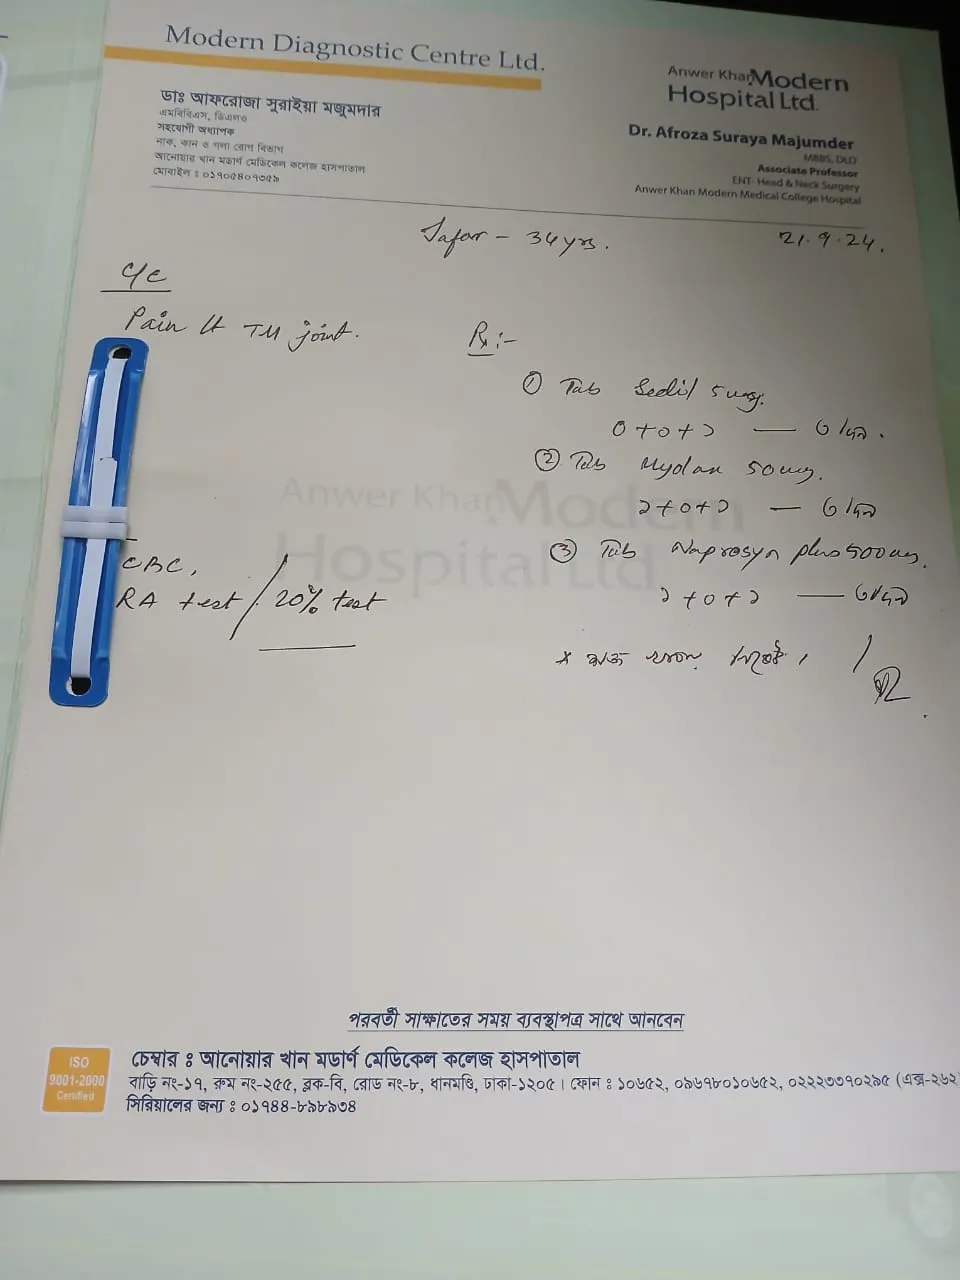 Modern Diagnostic Centre Ltd.
Anwer Khan Modern
Hospital Ltd.
ডাঃ আফরোজা সুরাইয়া মজুমদার
এমবিবিএস, ডিএলও
সহযোগী অধ্যাপক
নাক, কান ও গলা রোগ বিভাগ
আনোয়ার খান মডার্ণ মেডিকেল কলেজ হাসপাতাল
মোবাইল : ০১৭০৫৪০৭৩৫৯
Dr. Afroza Suraya Majumder
MBBS, DLO
Associate Professor
ENT- Head & Neck Surgery
Anwer Khan Modern Medical College Hospital
Jafor - 34 yrs.
21.9.24.
C/C
Pain Lt TM joint.
CBC,
RA test / 20% test
Rx :-
① Tab Sedil 5 mg.
0+0+১ —
② Tab Myolax 50 mg.
১+০+১ —
③ Tab Naprosyn plus 500 mg.
১+০+১ —
Anwer Khan Modern
Hospital Ltd.
পরবর্তী সাক্ষাতের সময় ব্যবস্থাপত্র সাথে আনবেন
ISO
9001-2000
Certified
চেম্বার : আনোয়ার খান মডার্ণ মেডিকেল কলেজ হাসপাতাল
বাড়ি নং-১৭, রুম নং-২৫৫, ব্লক-বি, রোড নং-৮, ধানমণ্ডি, ঢাকা-১২০৫। ফোন : ১০৬৫২, ০৯৬৭৮০১০৬৫২, ০২২২৩৩৭০২৯৫ (এক্স-২৬২
সিরিয়ালের জন্য : ০১৭৪৪-৮৯৮৯৩৪